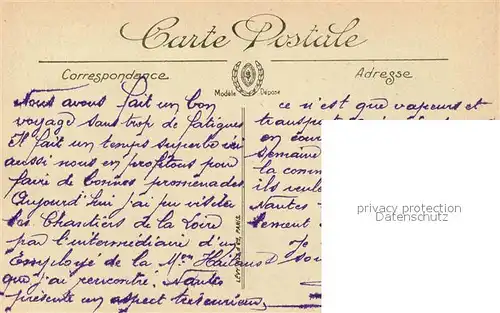 Carte Postale
Correspondance
Adresse
Modèle Déposé
Nous avons fait un bon
voyage sans trop de fatigue
Il fait un temps superbe ici
aussi nous en profitons pour
faire de bonnes promenades
Aujourd'hui j'ai pu visiter
les Chantiers de la Loire
par l'intermédiaire d'un
Employé de la Mon
que j'ai rencontré. Nantes
présente un aspect très curieux
ce n'est que vapeurs et
en cour
semaine
la comm
ils veule
Nantes
lement
de
soi
privacy protection
Datenschutz